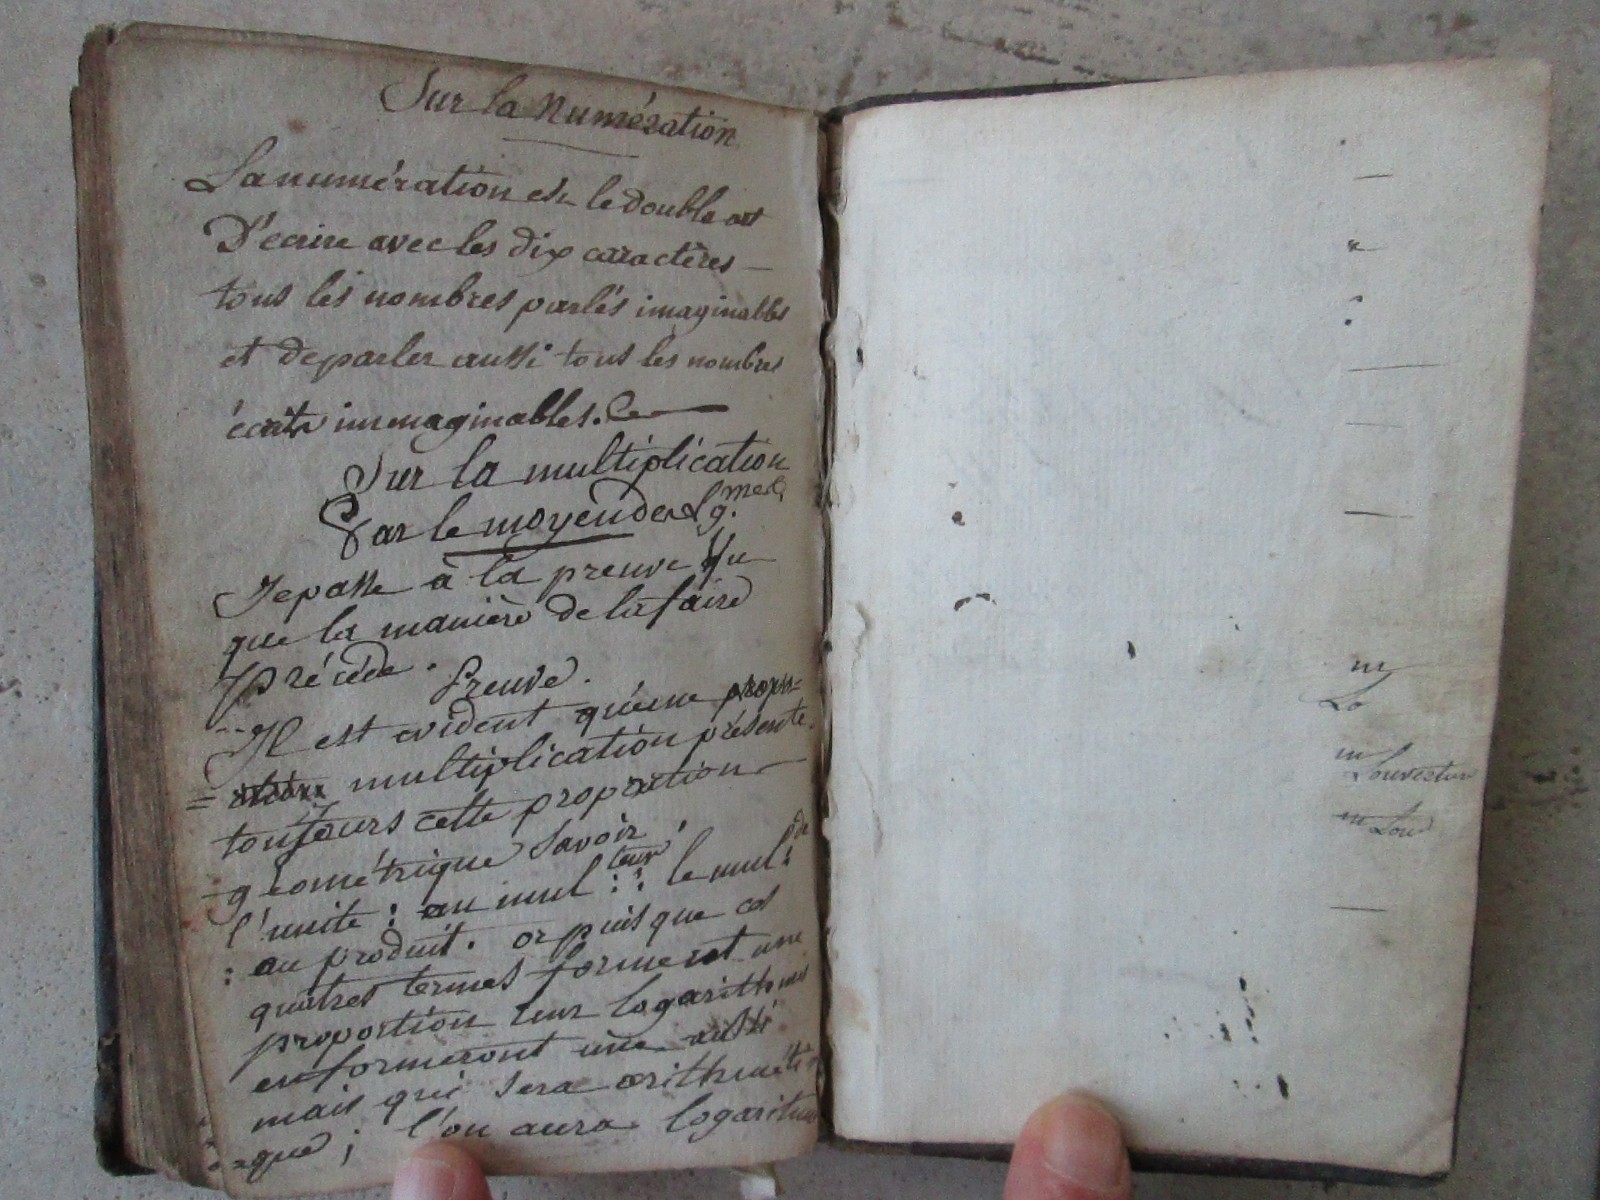 Sur la Numération
La numération est le double art
D'écrire avec les dix caractères
tous les nombres parlés imaginables
et de parler aussi tous les nombres
écrits immaginables.
Sur la multiplication
Par le moyen des Lg.mes
Je passe à la preuve Vu
que la manière de la faire
précède.
Preuve.
Il est evident qu'une
multiplication présente
toujours cette proportion
géométrique savoir;
l'unité : au mul.teur :: le mul.de
: au produit. or puisque ces
quatres termes forment une
proportion leur logarithmes
en formeront une aussi
mais qui sera arithméti
=que; l'on aura logarithme
m
Lo
m
Louverture
m Louv